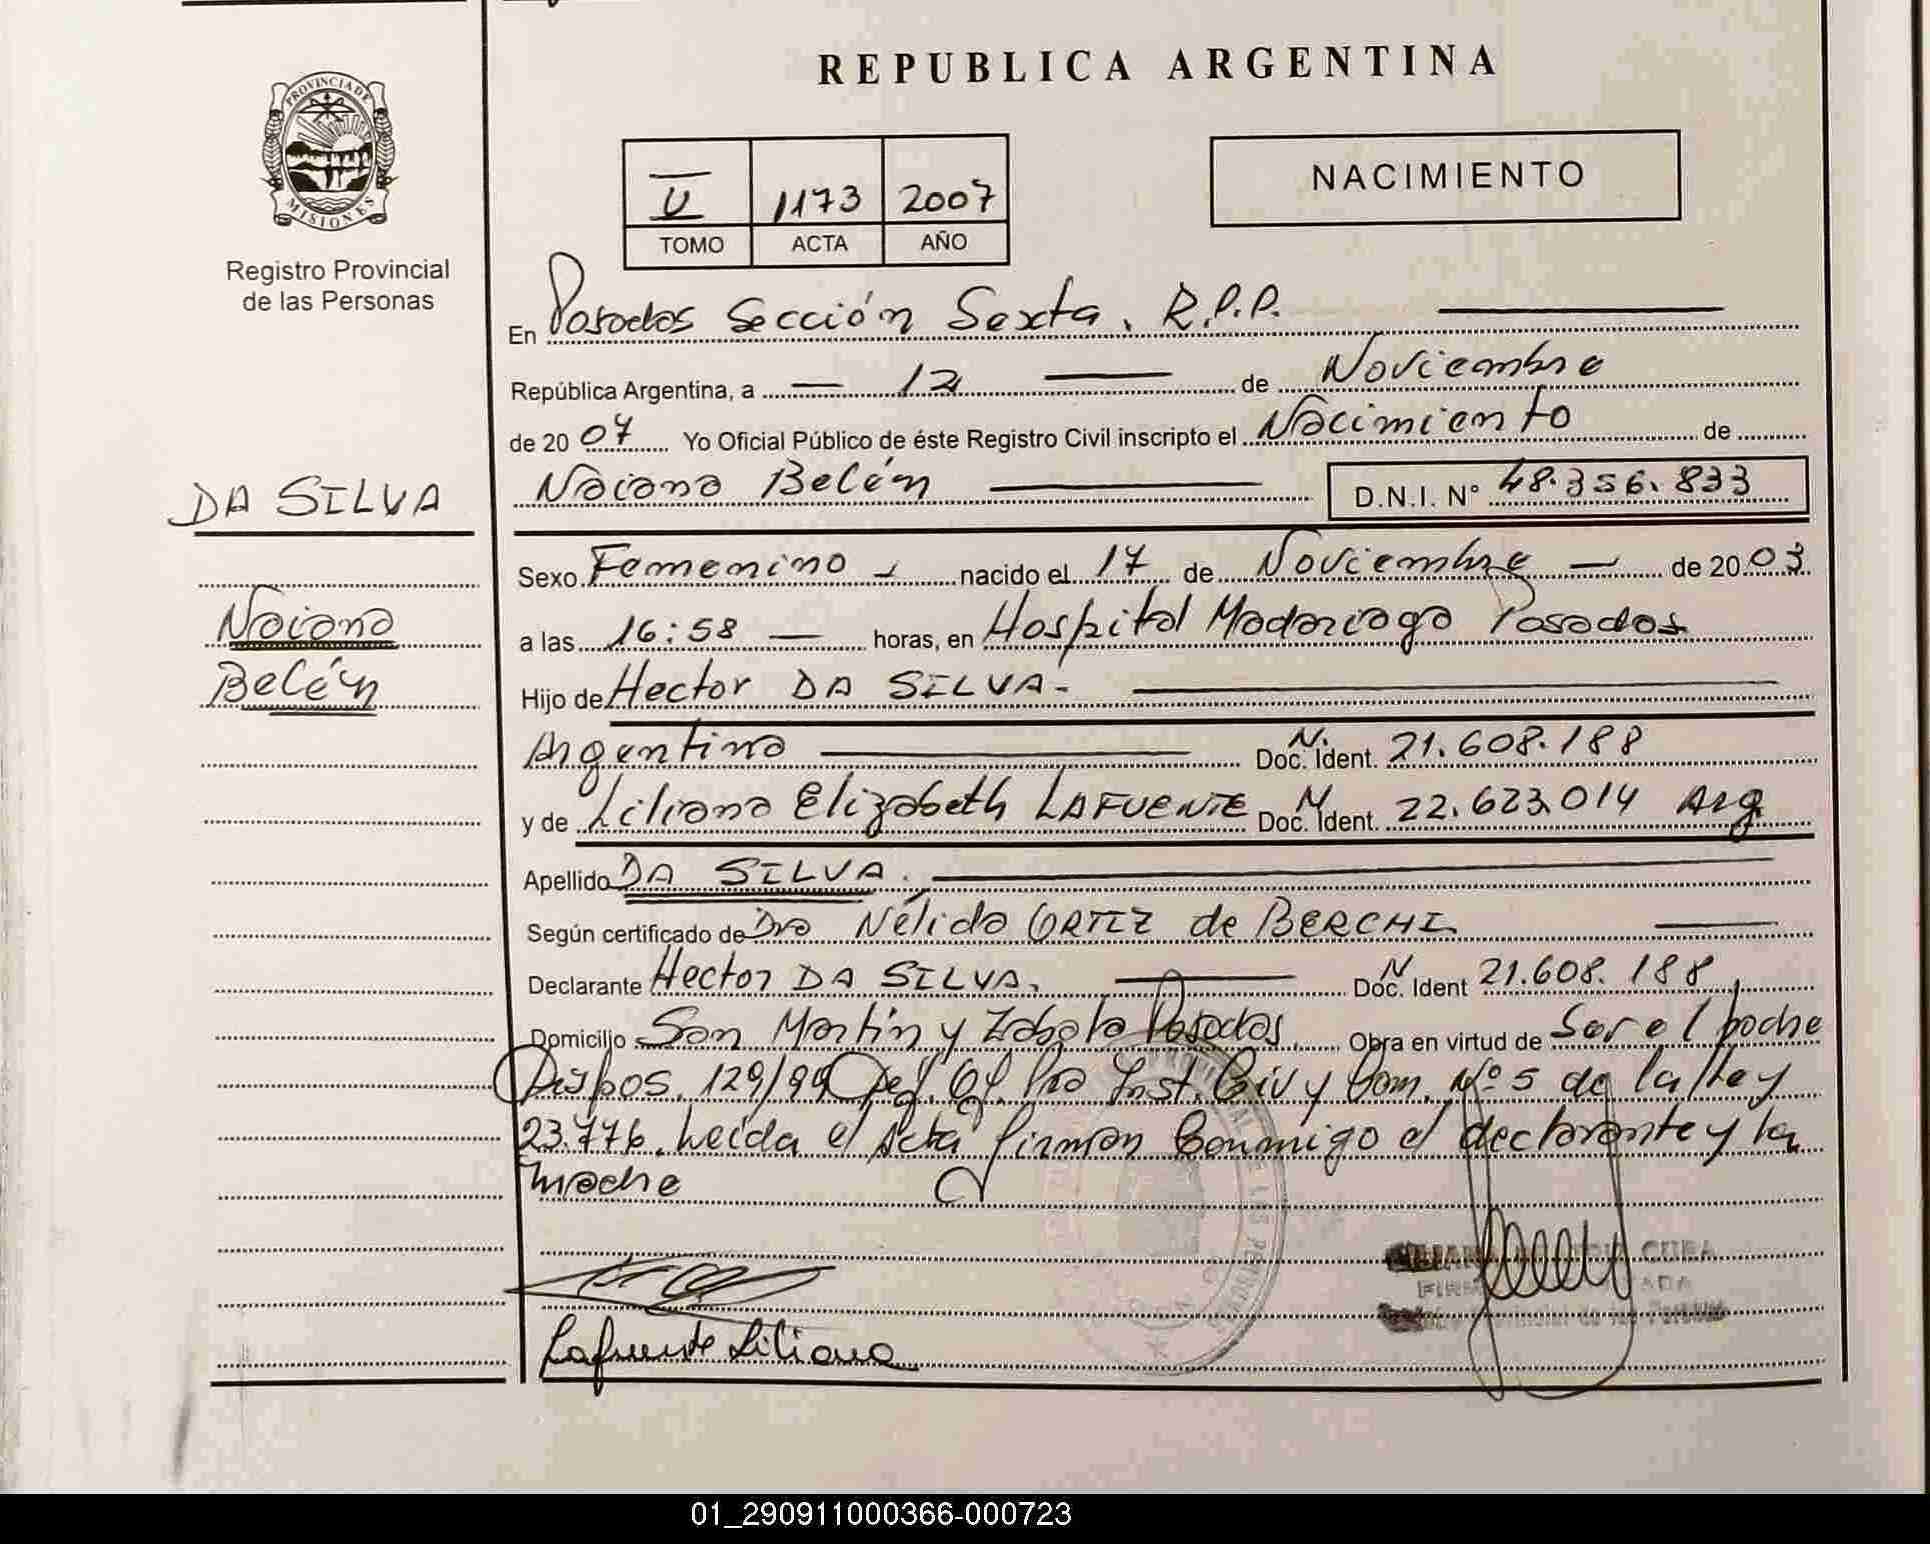 REPUBLICA ARGENTINA
PROVINCIA DE
MISIONES
Registro Provincial
de las Personas
NACIMIENTO
1173 2007
TOMO ACTA AÑO
En Posadas Sección Sexta. R.P.P.
República Argentina, a 12 de Noviembre
de 20 07 Yo Oficial Público de éste Registro Civil inscripto el Nacimiento de
DA SILVA
Naiana Belén D.N.I. N° 48.356.833
Sexo Femenino nacido el 17 de Noviembre de 20 03
Naiana
a las 16:58 horas, en Hospital Madariaga Posadas
Belén
Hijo de Hector DA SILVA.
Argentino N. Doc. Ident. 21.608.188
y de Liliana Elizabeth LAFUENTE N Doc. Ident. 22.623.014 Arg
Apellido DA SILVA.
Según certificado de Dra Nélida ORTIZ de BERCHI
Declarante Hector DA SILVA. N Doc. Ident 21.608.188
Domicilio San Martín y Zabala Posadas Obra en virtud de Ser el padre
Dispos. 129/99 Def. Of. Pra Inst. Civ y Com. Nº 5 de la ley
23.776. Leída el Acta firman Conmigo el declarante y la
madre
CUBA
Lafuente Liliana
01_290911000366-000723